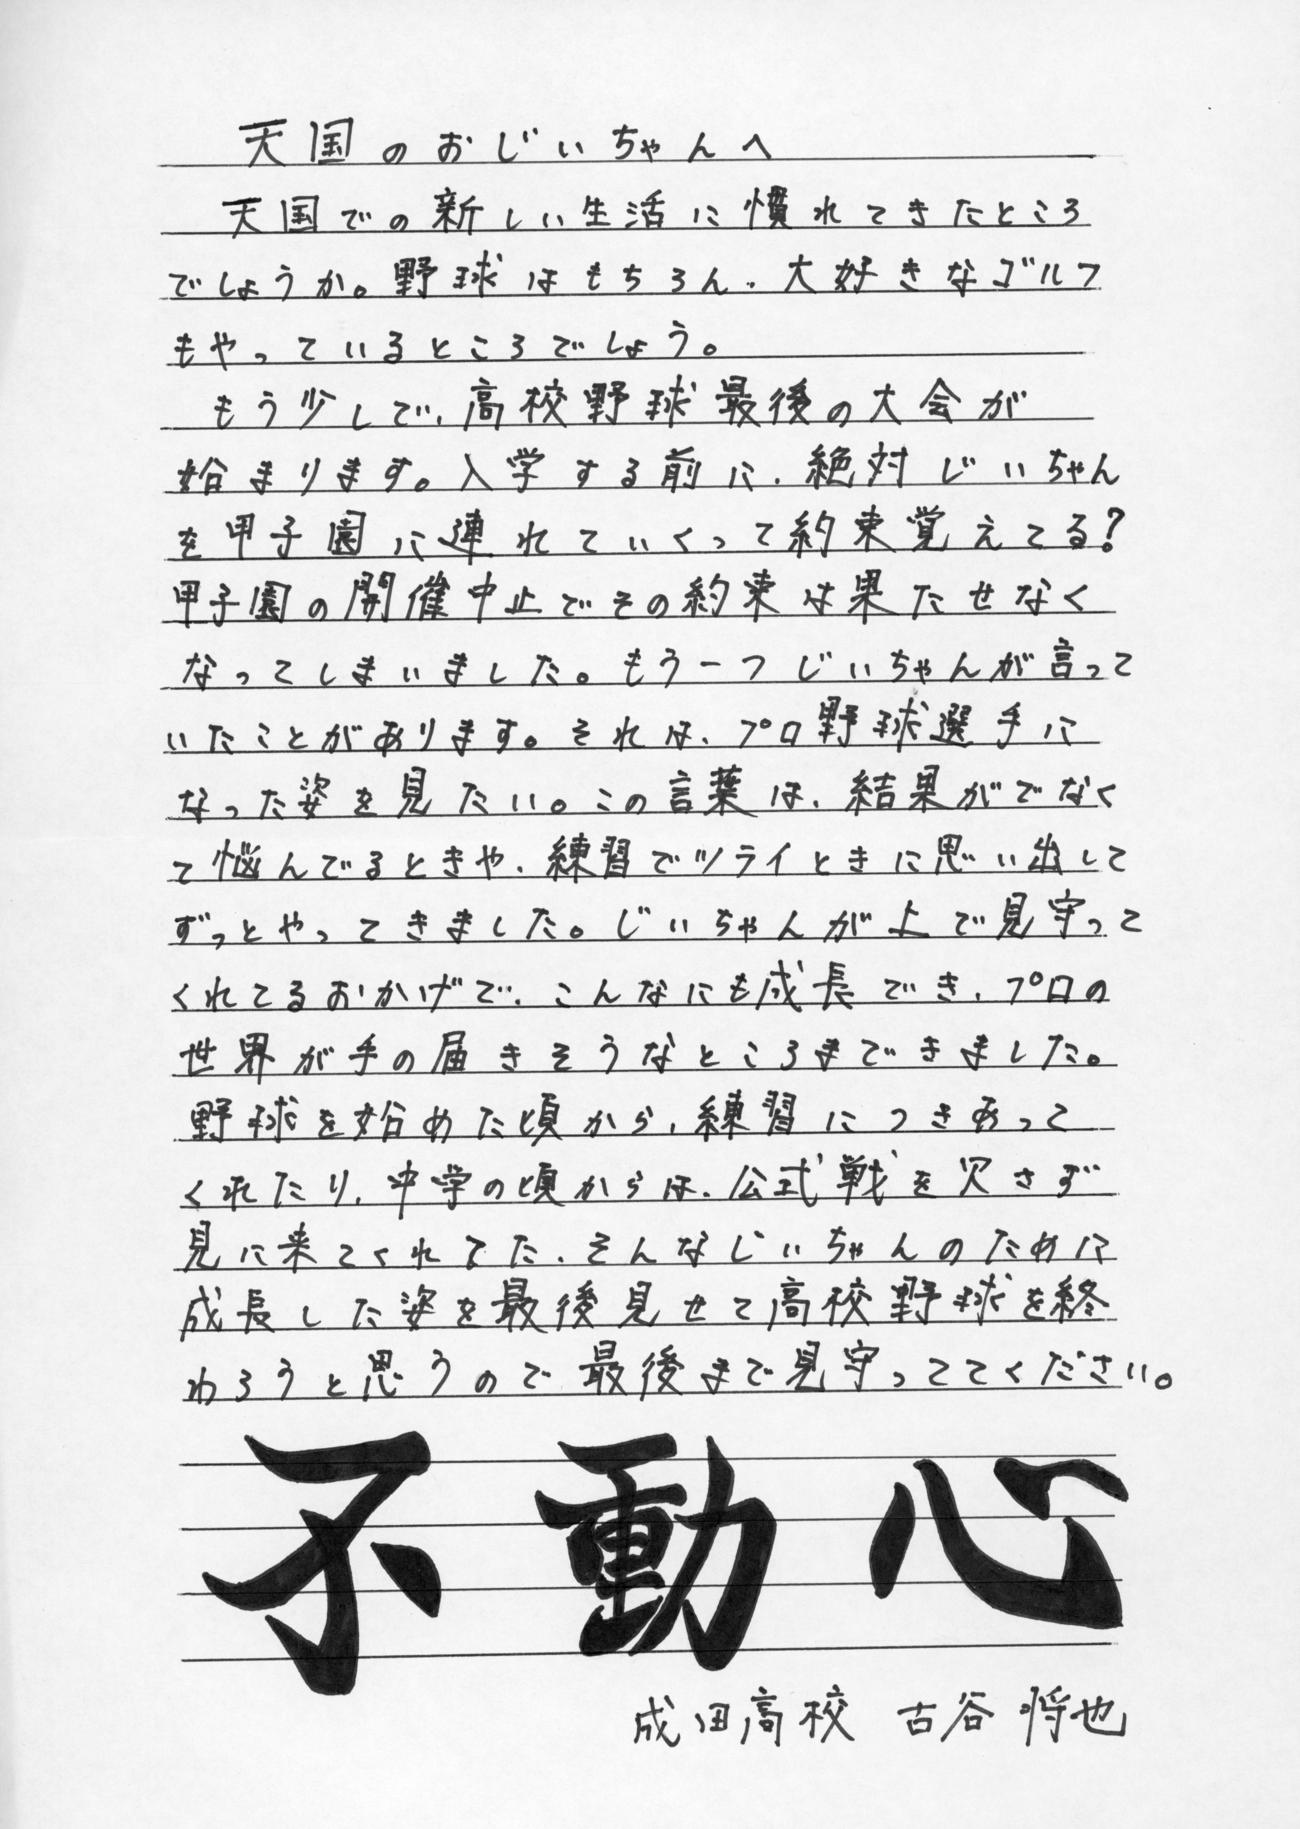 天国のおじいちゃんへ
天国での新しい生活に慣れてきたところ
でしょうか。野球はもちろん、大好きなゴルフ
もやっているところでしょう。
もう少しで、高校野球最後の大会が
始まります。入学する前に、絶対じいちゃん
を甲子園に連れていくって約束覚えてる?
甲子園の開催中止でその約束は果たせなく
なってしまいました。もう一つじいちゃんが言って
いたことがあります。それは、プロ野球選手に
なった姿を見たい。この言葉は、結果がでなく
て悩んでるときや、練習でツライときに思い出して
ずっとやってきました。じいちゃんが上で見守って
くれてるおかげで、こんなにも成長でき、プロの
世界が手の届きそうなところまできました。
野球を始めた頃から、練習につきあって
くれたり、中学の頃からは、公式戦を欠さず
見に来てくれてた、そんなじいちゃんのために
成長した姿を最後見せて高校野球を終
わろうと思うので最後まで見守っててください。
不動心
成田高校 古谷将也